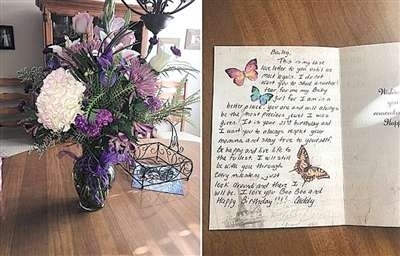 Bailey,
This is my last
love letter to you until we
meet again. I do not
want you to shed another
tear for me my Baby
girl for I am in a
better place. you are and will always
be the most precious jewel I was
given. It is your 21st birthday and
I want you to always respect your
momma and stay true to yourself.
Be happy and live life to
the fullest. I will still
be with you through
every milestone, just
look around and there I
will be. I love you Boo Boo and
Happy Birthday!!!! Daddy
you
Happ